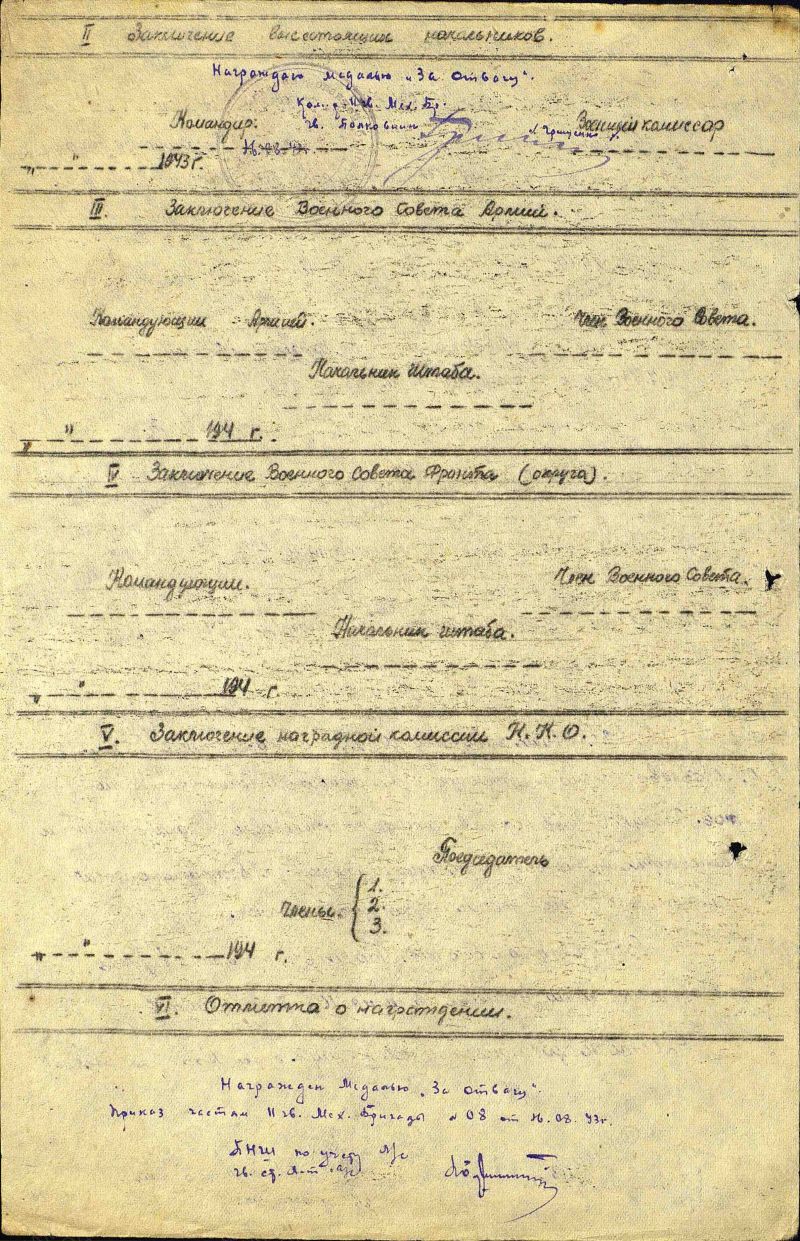 II Заключение вышестоящих начальников.
Награждаю медалью „За отвагу".
Ком-р 11 гв. Мех. Бр.
Командир: гв. Полковник Военный комиссар
„ " 1943 г.
III. Заключение Военного Совета Армии.
Командующий Армией. Член Военного Совета.
Начальник штаба.
„ " 194 г.
IV Заключение Военного Совета Фронта (округа).
Командующий. Член Военного Совета.
Начальник штаба.
„ " 194 г.
V. Заключение наградной комиссии Н.К.О.
Председатель
Члены. 1.
2.
3.
„ " 194 г.
VI. Отметка о награждении.
Награжден Медалью „За отвагу".
Приказ частям 11 гв. Мех. Бригады № 08 от 16.08.43г.
ПНШ по учету л/с
гв. ст. л-т а/с